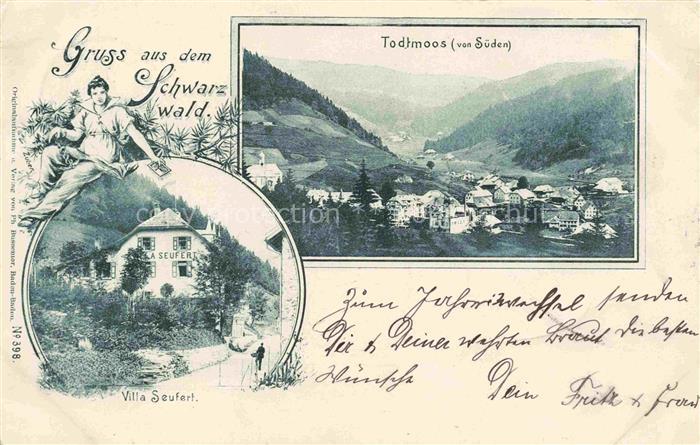 Gruss aus dem
Schwarz
wald.
Todtmoos (von Süden)
VILLA SEUFERT
Villa Seufert.
Originalaufnahme u. Verlag von Ph. Bussemer, Baden-Baden. No 398.
Zum Jahreswechsel senden
Dir & Deiner wehrten Braut die besten
Wünsche Dein Fritz & Frau
copyright protection